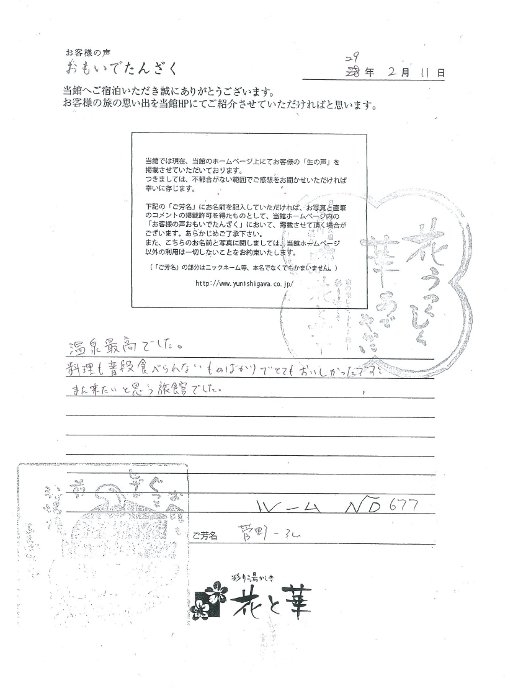 お客様の声
おもいでたんざく
29
年 2月 11日
当館へご宿泊いただき誠にありがとうございます。
お客様の旅の思い出を当館HPにてご紹介させていただければと思います。
当館では現在、当館のホームページ上にてお客様の「生の声」を
掲載させていただいております。
つきましては、不都合がない範囲でご感想をお聞かせいただければ
幸いに存じます。
下記の「ご芳名」にお名前を記入していただければ、お写真と直筆
のコメントの掲載許可を得たものとして、当館ホームページ内の
「お客様の声おもいでたんざく」において、掲載させて頂く場合が
ございます。あらかじめご了承下さい。
また、こちらのお名前と写真に関しましては、当館ホームページ
以外の利用は一切しないことをお約束いたします。
(「ご芳名」の部分はニックネーム等、本名でなくてもかまいません。)
http://www.yunishigawa.co.jp/
花
うつくしく
華
温泉最高でした。
料理も普段食べらんないものばかりでとてもおいしかったです。
また来たいと思う旅館でした。
ルーム ND 677
ご芳名 菅野
彩り湯かしき
花と華